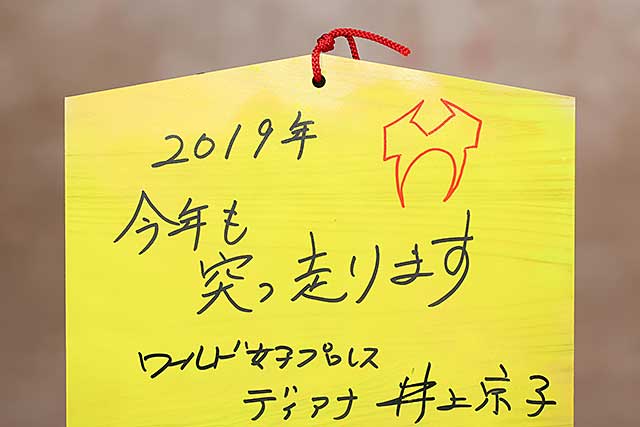 2019年
今年も
突っ走ります
ワールド女子プロレス
ディアナ 井上京子